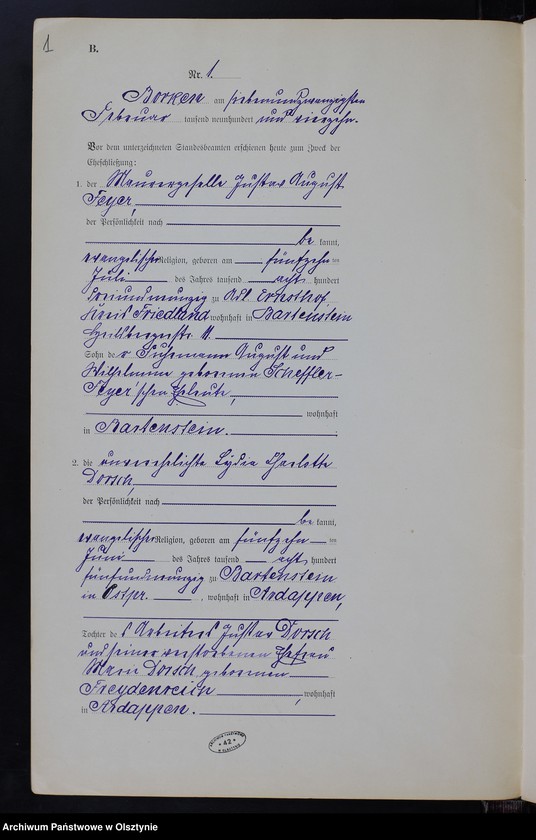 1
B.
Nr. 1.
Borken am siebenundzwanzigsten
Februar tausend neunhundert und vierzehn.
Vor dem unterzeichneten Standesbeamten erschienen heute zum Zweck der
Eheschließung:
1. der Maurergeselle Gustav August
Feyer,
der Persönlichkeit nach
be kannt,
evangelischer Religion, geboren am fünfzehn ten
Juli des Jahres tausend acht hundert
dreiundneunzig zu Adl. Ernsthof,
Kreis Friedland wohnhaft in Bartenstein
11.
Sohn de r August und
Wilhelmine geborenen Scheffler-
Feyer'schen Eheleute,
wohnhaft
in Bartenstein.
2. die unverehelichte Lydia Charlotte
Dorsch,
der Persönlichkeit nach
be kannt,
evangelischer Religion, geboren am fünfzehn ten
Juni des Jahres tausend acht hundert
fünfundneunzig zu Bartenstein
in Ostpr. , wohnhaft in Ardappen,
Tochter de s Arbeiters Gustav Dorsch
und seiner verstorbenen Ehefrau
Marie Dorsch geborenen
Freydenreich , wohnhaft
in Ardappen.
42
Archiwum Państwowe w Olsztynie